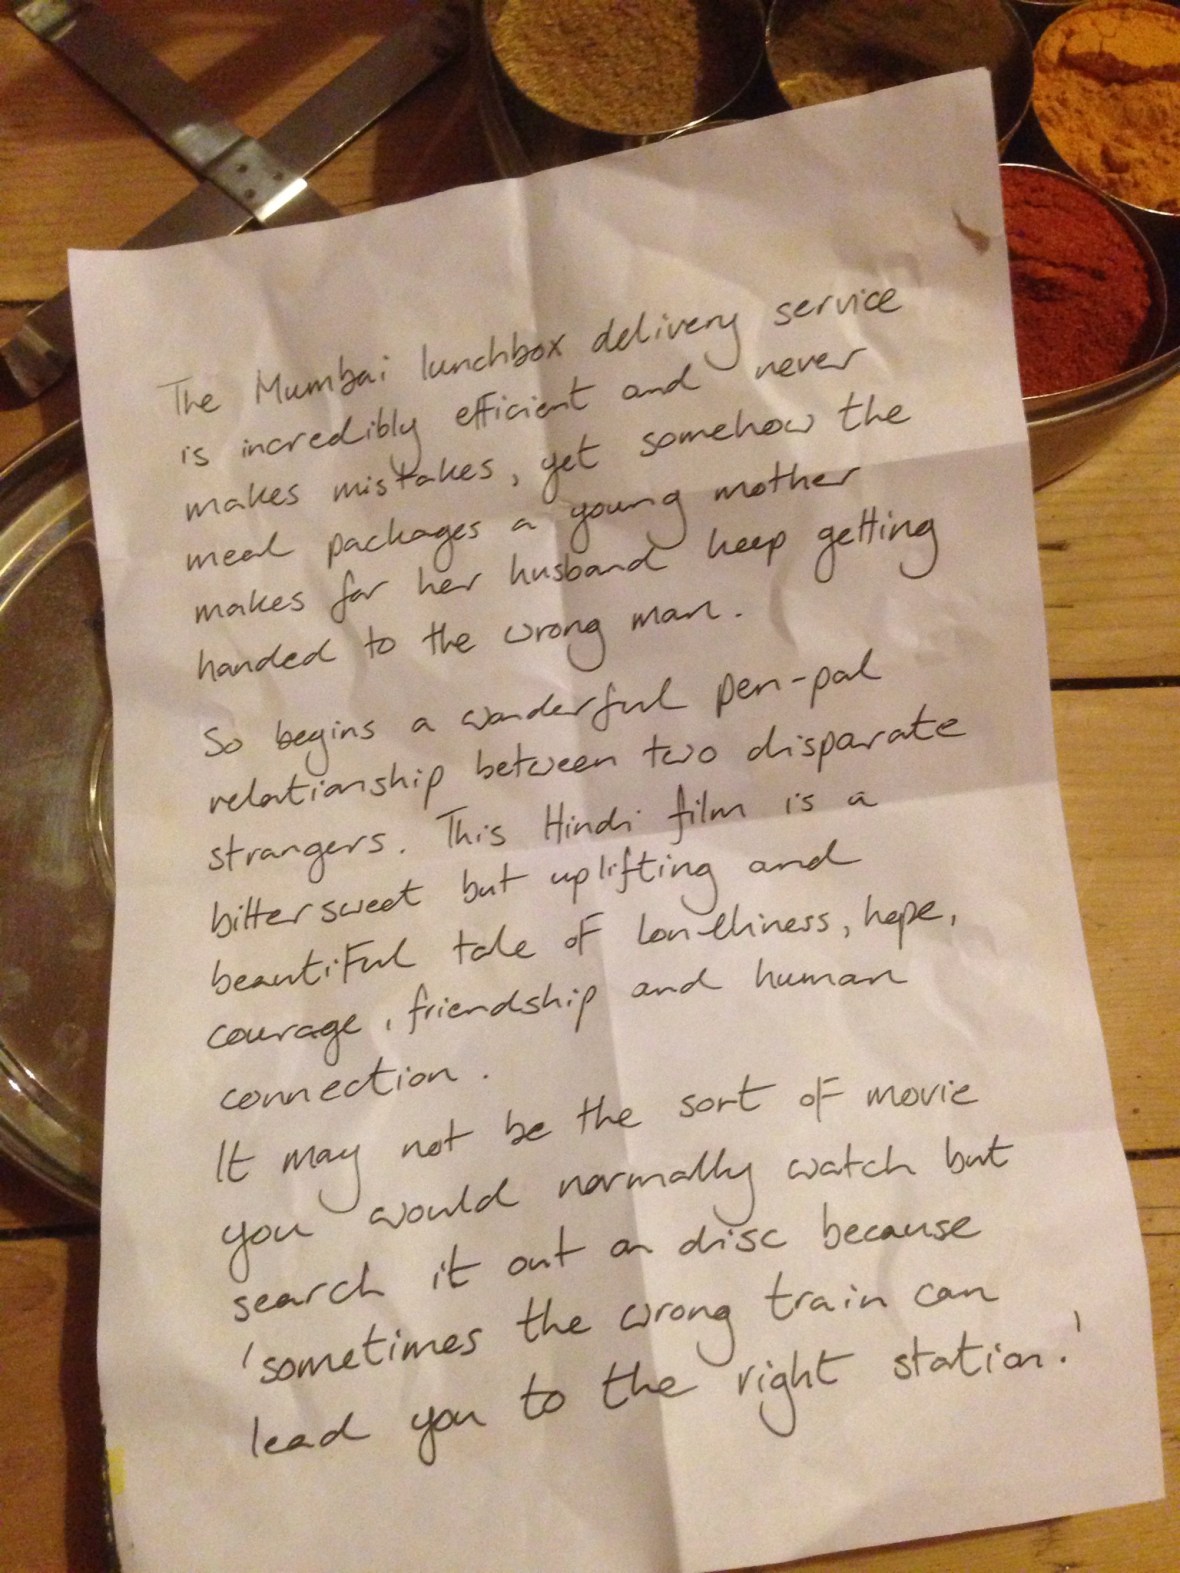 The Mumbai lunchbox delivery service
is incredibly efficient and never
makes mistakes, yet somehow the
meal packages a young mother
makes for her husband keep getting
handed to the wrong man.
So begins a wonderful pen-pal
relationship between two disparate
strangers. This Hindi film is a
bittersweet but uplifting and
beautiful tale of lonelliness, hope,
courage, friendship and human
connection.
It may not be the sort of movie
you would normally watch but
search it out on disc because
'sometimes the wrong train can
lead you to the right station.'